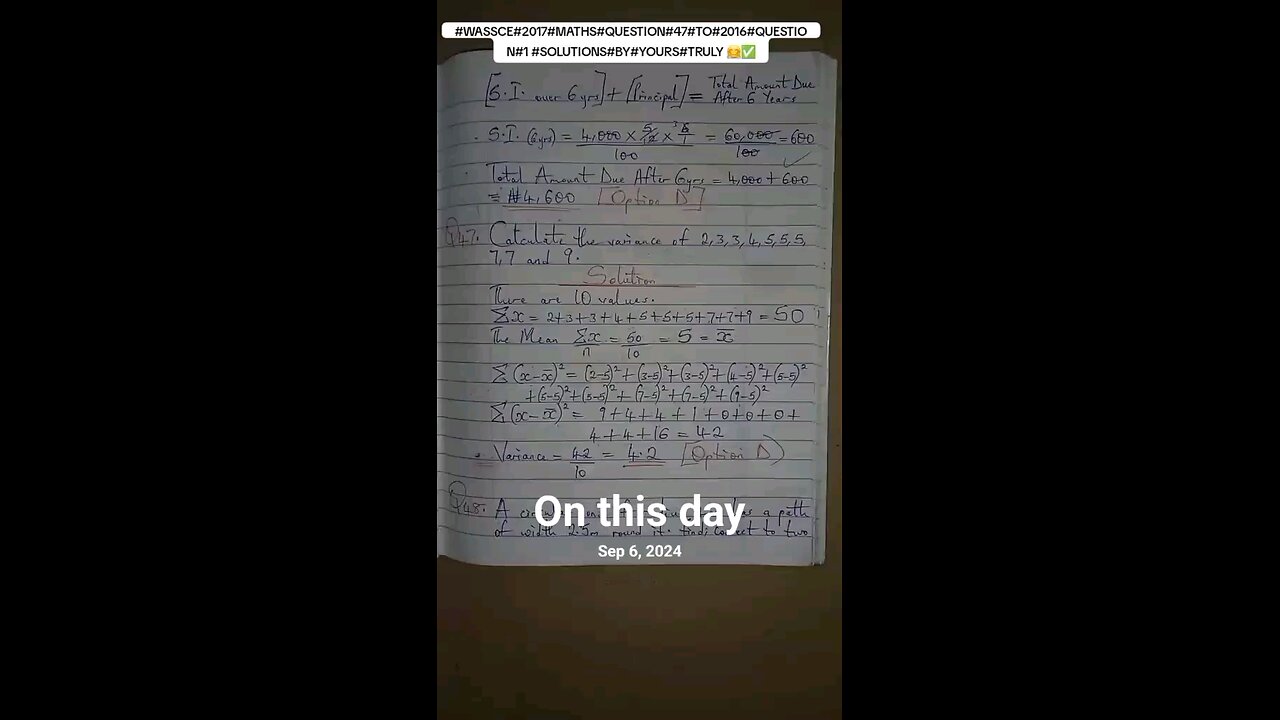 #WASSCE#2017#MATHS#QUESTION#47#TO#2016#QUESTIO
N#1 #SOLUTIONS#BY#YOURS#TRULY 😊✅
[S.I. over 6yrs] + [Principal] = Total Amount Due After 6 Years
S.I. (6yrs) = 4,000 × 5/12 × 3 6/1 / 100 = 60,000/100 = 600
Total Amount Due After 6yrs = 4,000 + 600
= ₦4,600 [Option D]
Q47. Calculate the variance of 2,3,3,4,5,5,5,
7,7 and 9.
Solution
There are 10 values.
Σx = 2+3+3+4+5+5+5+7+7+9 = 50
The Mean Σx/n = 50/10 = 5 = x̄
Σ(x-x̄)² = (2-5)²+(3-5)²+(3-5)²+(4-5)²+(5-5)²
+(5-5)²+(5-5)²+(7-5)²+(7-5)²+(9-5)²
Σ(x-x̄)² = 9+4+4+1+0+0+0+
4+4+16 = 42
∴ Variance = 42/10 = 4.2 [Option D)
Q48. A a path
of width 2.5m round it. correct to two
On this day
Sep 6, 2024